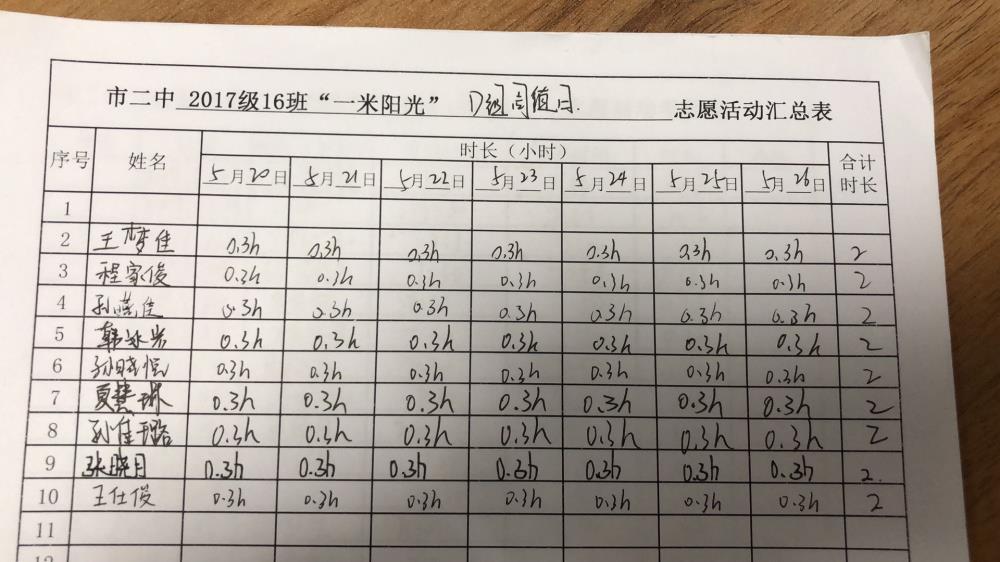 市二中 2017级16班“一米阳光” D组周值日 志愿活动汇总表
序号 姓名 时长（小时） 合计时长
5月20日 5月21日 5月22日 5月23日 5月24日 5月25日 5月26日
1
2 王梦佳 0.3h 0.3h 0.3h 0.3h 0.3h 0.3h 0.3h 2
3 程家俊 0.3h 0.3h 0.3h 0.3h 0.3h 0.3h 0.3h 2
4 孙燕佳 0.3h 0.3h 0.3h 0.3h 0.3h 0.3h 0.3h 2
5 韩冰 0.3h 0.3h 0.3h 0.3h 0.3h 0.3h 0.3h 2
6 孙晓悦 0.3h 0.3h 0.3h 0.3h 0.3h 0.3h 0.3h 2
7 夏慧琳 0.3h 0.3h 0.3h 0.3h 0.3h 0.3h 0.3h 2
8 孙佳璐 0.3h 0.3h 0.3h 0.3h 0.3h 0.3h 0.3h 2
9 张晓月 0.3h 0.3h 0.3h 0.3h 0.3h 0.3h 0.3h 2.
10 王仕俊 0.3h 0.3h 0.3h 0.3h 0.3h 0.3h 0.3h 2
11